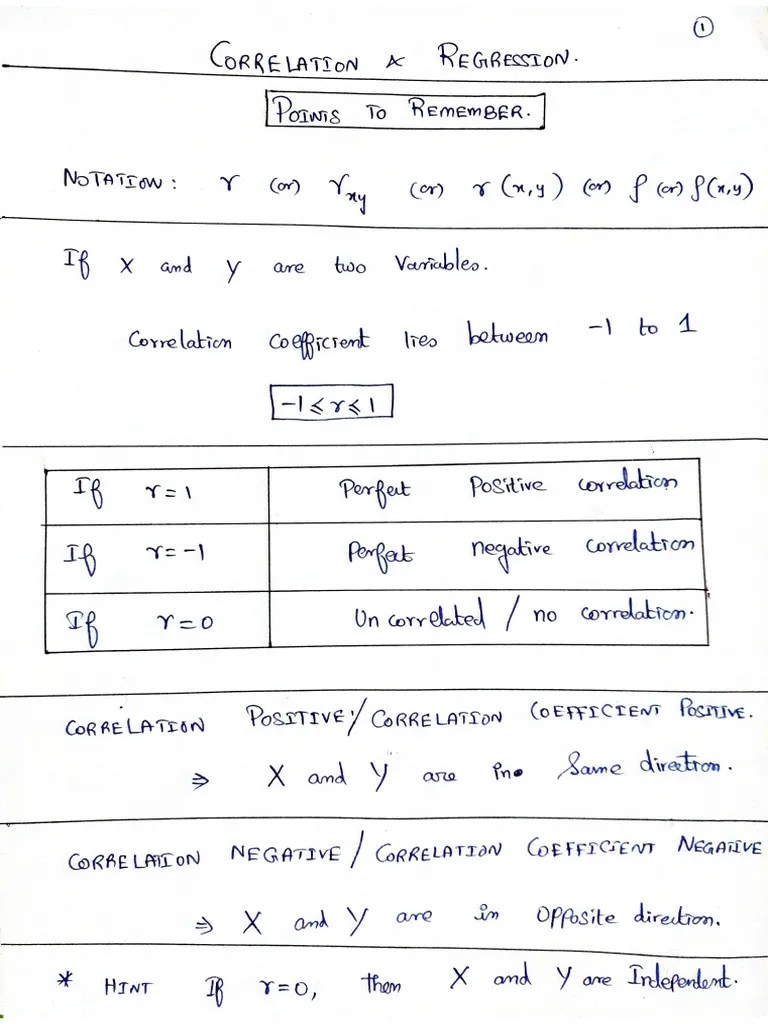 ①
CORRELATION & REGRESSION.
POINTS TO REMEMBER.
NOTATION: r (or) r_xy (or) r(x,y) (or) ρ (or) ρ(x,y)
If X and Y are two Variables.
Correlation coefficient lies between -1 to 1
-1 ≤ r ≤ 1
If r = 1 Perfect Positive correlation
If r = -1 Perfect negative correlation
If r = 0 Uncorrelated / no correlation.
CORRELATION POSITIVE / CORRELATION COEFFICIENT POSITIVE.
⇒ X and Y are in Same direction.
CORRELATION NEGATIVE / CORRELATION COEFFICIENT NEGATIVE
⇒ X and Y are in Opposite direction.
* HINT If r=0, then X and Y are Independent.